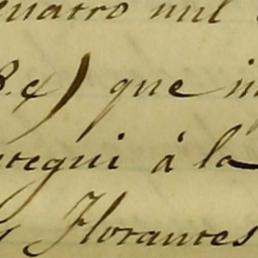 cuatro mil
8.4) que i
rregui á la
y Florantes